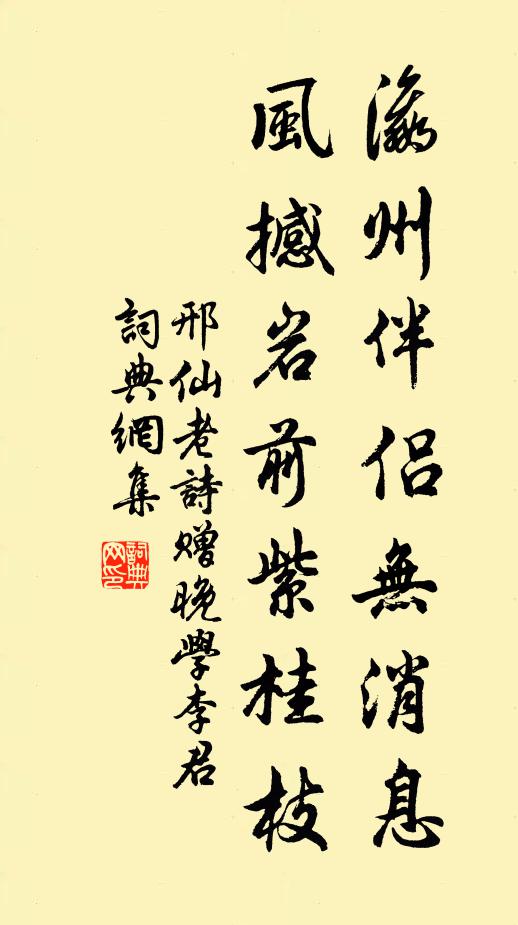 瀛州伴侶無消息
風撼岩前紫桂枝
邢仙老詩贈晚學李君
詞典網集
詞典網印